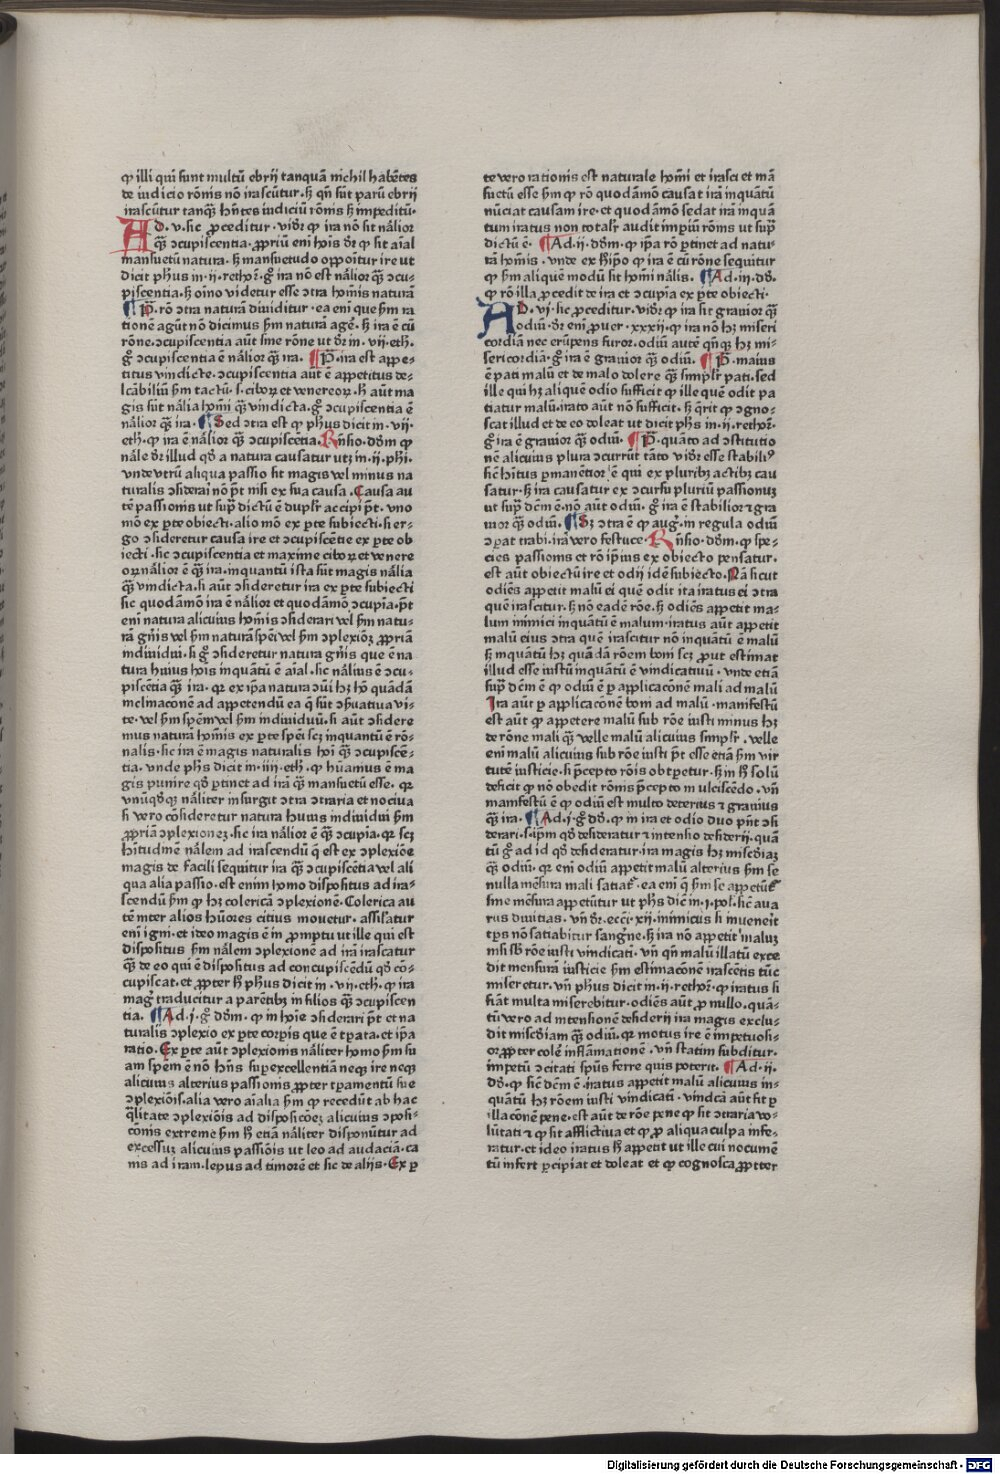 ꝙ illi qui sunt multū ebrij tanquā nichil habētes
de iudicio rōnis nō irascūtur. ꝫ qn̄ sūt parū ebrij
irascūtur tanqͫ hn̄tes iudiciū rōnis ꝫ impeditū.
AD .v. sic proceditur. vidr̄ ꝙ ira nō sit nālior
qͫ ꝯcupiscentia. propriū eni hoīs dr̄ ꝙ sit aīal
mansuetū natura. ꝫ mansuetudo opponitur ire ut
dicit phūs in .ii. rethoꝝ. gͦ ira nō est nālior qͫ ꝯcu-
piscentia. ꝫ oīno videtur esse ꝯtra homīs naturā
¶ P̄. rō ꝯtra naturā diuiditur. ea eni que ẜm ra
tionē agūt nō dicimus ẜm naturā agē. ꝫ ira ē cū
rōne. ꝯcupiscentia aūt sine rōne ut dr̄ in .vii. eth.
gͦ ꝯcupiscentia ē nālior qͫ ira. ¶ P̄. ira est appe-
titus vindicte. ꝯcupiscentia aūt ē appetitus de-
lcābiliū ẜm tactū. s. ciboꝝ et venereoꝝ. h̄ aūt ma
gis sūt nālia homī qͫ vindicta. gͦ ꝯcupiscentia ē
nālior qͫ ira. ¶ Sed ꝯtra est ꝙ phūs dicit in .vii.
eth. ꝙ ira ē nālior qͫ ꝯcupiscētia. Rn̄sio. dōm ꝙ
nāle dr̄ illud qd̄ a natura causatur utꝫ in .ii. phi.
vnde vtrū aliqua passio sit magis vel minus na
turalis ꝯsiderari nō pt̄ nisi ex sua causa. Causa au
tē passionis ut supͣ dictū ē duplr̄ accipi pt̄. vno
mō ex ꝑte obiecti. alio mō ex ꝑte subiecti. si er-
go ꝯsideretur causa ire et ꝯcupiscētie ex ꝑte ob
iecti. sic ꝯcupiscentia et maxime ciboꝝ et venere
oꝝ nālior ē qͫ ira. inquantū ista sūt magis nālia
qͫ vindicta. si aūt ꝯsideretur ira ex ꝑte subiecti
sic quodāmō ira ē nālior et quodāmō ꝯcupīa. pt̄
eni natura alicuius homīs ꝯsiderari vel ẜm natu-
rā gn̄is vel ẜm naturā spēi vel ẜm ꝯplexiōꝫ propriā
indiuidui. si gͦ ꝯsideretur natura gn̄is que ē na
tura huius hoīs inquantū ē aīal. sic nālius ē ꝯcu-
piscētia qͫ ira. qꝛ ex ipͣa natura ꝯūi hꝫ hō quādā
inclinaconē ad appetendū ea q̄ sūt ꝯẜuatiua vi-
te. vel ẜm spēm vel ẜm indiuiduū. si aūt ꝯsidere
mus naturā homīs ex ꝑte spēi scꝫ inquantū ē rō-
nalis. sic ira ē magis naturalis hoī qͫ ꝯcupiscē-
tia. vnde phs̄ dicit in .iiii. eth. ꝙ hūanius ē ma
gis punire qd̄ ꝑtinet ad irā qͫ mansuetū esse. qꝛ
vnūqd̄qꝫ nāliter insurgit ꝯtra ꝯtraria et nociua
si vero cōsideretur natura huius indiuidui ẜm
propriā ꝯplexionez. sic ira nālior ē qͫ ꝯcupīa. qꝛ scꝫ
hītudinē nālem ad irascendū q̄ est ex ꝯplexiōe
magis de facili sequitur ira qͫ ꝯcupiscētia vel ali
qua alia passio. est enim homo dispositus ad ira-
scendū ẜm ꝙ hꝫ colericā ꝯplexionē. Colerica au
tē inter alios hūores citius mouetur. assilatur
eni igni. et ideo magis ē in promptu ut ille qui est
dispositus ẜm nālem ꝯplexionē ad irā irascatur
qͫ de eo qui ē dispositus ad concupiscēdū qd̄ cō-
cupiscat. et propter h̄ phūs dicit in .vii. eth. ꝙ ira
magͥ traducitur a parētibꝫ in filios qͫ ꝯcupiscen
tia. ¶ Ad .j. gͦ dōm. ꝙ in hoīe ꝯsiderari pt̄ et na
turalis ꝯplexio ex ꝑte corpis que ē tꝑata. et ipͣa
ratio. Ex ꝑte aūt ꝯplexionis nāliter homo ẜm su
am spēm ē nō hn̄s suꝑexcellentiā neqꝫ ire neqꝫ
alicuius alterius passionis propter tꝑamentū sue
ꝯplexiōis. alia vero aīalia ẜm ꝙ recedūt ab hac
qͣlitate ꝯplexiōis ad dispositōeꝫ alicuius ꝯposi-
cōnis extreme ẜm h̄ etiā nāliter disponūtur ad
excessuꝫ alicuius passiōis ut leo ad audaciā. ca
nis ad iram. lepus ad timorē et sic de alijs. Ex ꝑ
te vero rationis est naturale homī et irasci et mā
suetū esse ẜm ꝙ rō quodāmō causat irā inquātū
nūciat causam ire. et quodāmō sedat irā inquā
tum iratus non totalr̄ audit impiū rōnis ut supͣ
dictū ē. ¶ Ad .ii. dōm. ꝙ ipͣa rō ꝑtinet ad natu-
rā homīs. vnde ex hͦ ipͦo ꝙ ira ē cū rōne sequitur
ꝙ ẜm aliquē modū sit homī nālis. ¶ Ad .iii. dō.
ꝙ rō illa procedit de ira et ꝯcupīa ex ꝑte obiecti.
AD .vj. sic proceditur. vidr̄ ꝙ ira sit grauior qͫ
odiū. dr̄ eni prouer. xxxij. ꝙ ira nō hꝫ miseri
cordiā nec erūpens furor. odiū autē qn̄qꝫ hꝫ mi-
sericordiā. gͦ ira ē grauior qͫ odiū. ¶ P̄. maius
ē pati malū et de malo dolere qͫ simplr̄ pati. sed
ille qui hꝫ aliquē odio sufficit ꝙ ille quē odit pa
tiatur malū. irato aūt nō sufficit. ꝫ q̄rit ꝙ ꝯgno-
scat illud et de eo doleat ut dicit phs̄ in .ii. rethoꝝ.
gͦ ira ē grauior qͫ odiū. ¶ P̄. quāto ad ꝯstitutio
nē alicuius plura ꝯcurrūt tāto vidr̄ esse stabiliꝰ
sic hītus ꝑmanētior ē qui ex pluribꝫ actibꝫ cau
satur. ꝫ ira causatur ex ꝯcursu pluriū passionuꝫ
ut supͣ dēm ē. nō aūt odiū. gͦ ira ē stabilior ⁊ gra
uior qͫ odiū. ¶ Sꝫ ꝯtra ē ꝙ augͥ. in regula odiū
ꝯꝑat trabi. irā vero festuce. Rn̄sio. dōm. ꝙ spe-
cies passionis et rō ipͥius ex obiecto pensatur.
est aūt obiectū ire et odij idē subiecto. Nā sicut
odiēs appetit malū ei quē odit ita iratus ei ꝯtra
quē irascitur. ꝫ nō eadē rōe. ꝫ odiēs appetit ma-
lum inimici inquātū ē malum. iratus aūt appetit
malū eius ꝯtra quē irascitur nō inquātū ē malū
ꝫ inquātū hꝫ quādā rōem boni scꝫ prout estimat
illud esse iustū inquātū ē vindicatiuū. vnde etiā
supͣ dēm ē ꝙ odiū ē ꝑ applicaconē mali ad malū
Ira aūt ꝑ applicaconē boni ad malū. manifestū
est aūt ꝙ appetere malū sub rōe iusti minus hꝫ
de rōne mali qͫ velle malū alicuius simplr̄. velle
eni malū alicuius sub rōe iusti pt̄ esse etiā ẜm vir
tutē iusticie. si p̄cepto rōis obtꝑetur. ꝫ in h̄ solū
deficit ꝙ nō obedit rōnis p̄cepto in ulciscēdo. vn̄
manifestū ē ꝙ odiū est multo deterius ⁊ grauius
qͫ ira. ¶ Ad .j. gͦ dō. ꝙ in ira et odio duo pn̄t ꝯsi
derari. s. ipm̄ qd̄ desideratur ⁊ intensio desiderij. quā
tū gͦ ad id qd̄ desideratur. ira magis hꝫ misc̄diaꝫ
qͫ odiū. qꝛ eni odiū appetit malū alterius ẜm se
nulla mēsura mali satiatͬ. ea eni q̄ ẜm se appetūtͬ
sine mēsura appetūtur ut phs̄ dic̄ in .j. pol. sic aua
rus diuitias. vn̄ dr̄. ecci. xij. inimicus si inuenerit
tp̄s nō satiabitur sangͥne. ꝫ ira nō appetit maluꝫ
nisi sb̄ rōe iusti vindicati. vn̄ qn̄ malū illatū exce
dit mensurā iusticie ẜm estimaconē irascētis tūc
miseretur. vn̄ phūs dicit in .ii. rethoꝝ. ꝙ iratus si
fiāt multa miserebitur. odiēs aūt pro nullo. quā-
tū vero ad intensionē desiderij ira magis exclu-
dit misc̄diam qͫ odiū. qꝛ motus ire ē impetuosi-
or propter colē inflāmationē. vn̄ statim subditur.
impetū ꝯcitati spūs ferre quis poterit. ¶ Ad .ii.
dō. ꝙ sic dēm ē. iratus appetit malū alicuius in-
quātū hꝫ rōem iusti vindicati. vindcā aūt fit ꝑ
illacōnē pene. est aūt de rōe pene ꝙ sit ꝯtraria vo-
lūtati ⁊ ꝙ sit afflictiua et ꝙ pro aliqua culpa infe-
ratur. et ideo iratus h̄ appetit ut ille cui nocumē
tū infert ꝑcipiat et doleat et ꝙ cognoscat propter
Digitalisierung gefördert durch die Deutsche Forschungsgemeinschaft - DFG